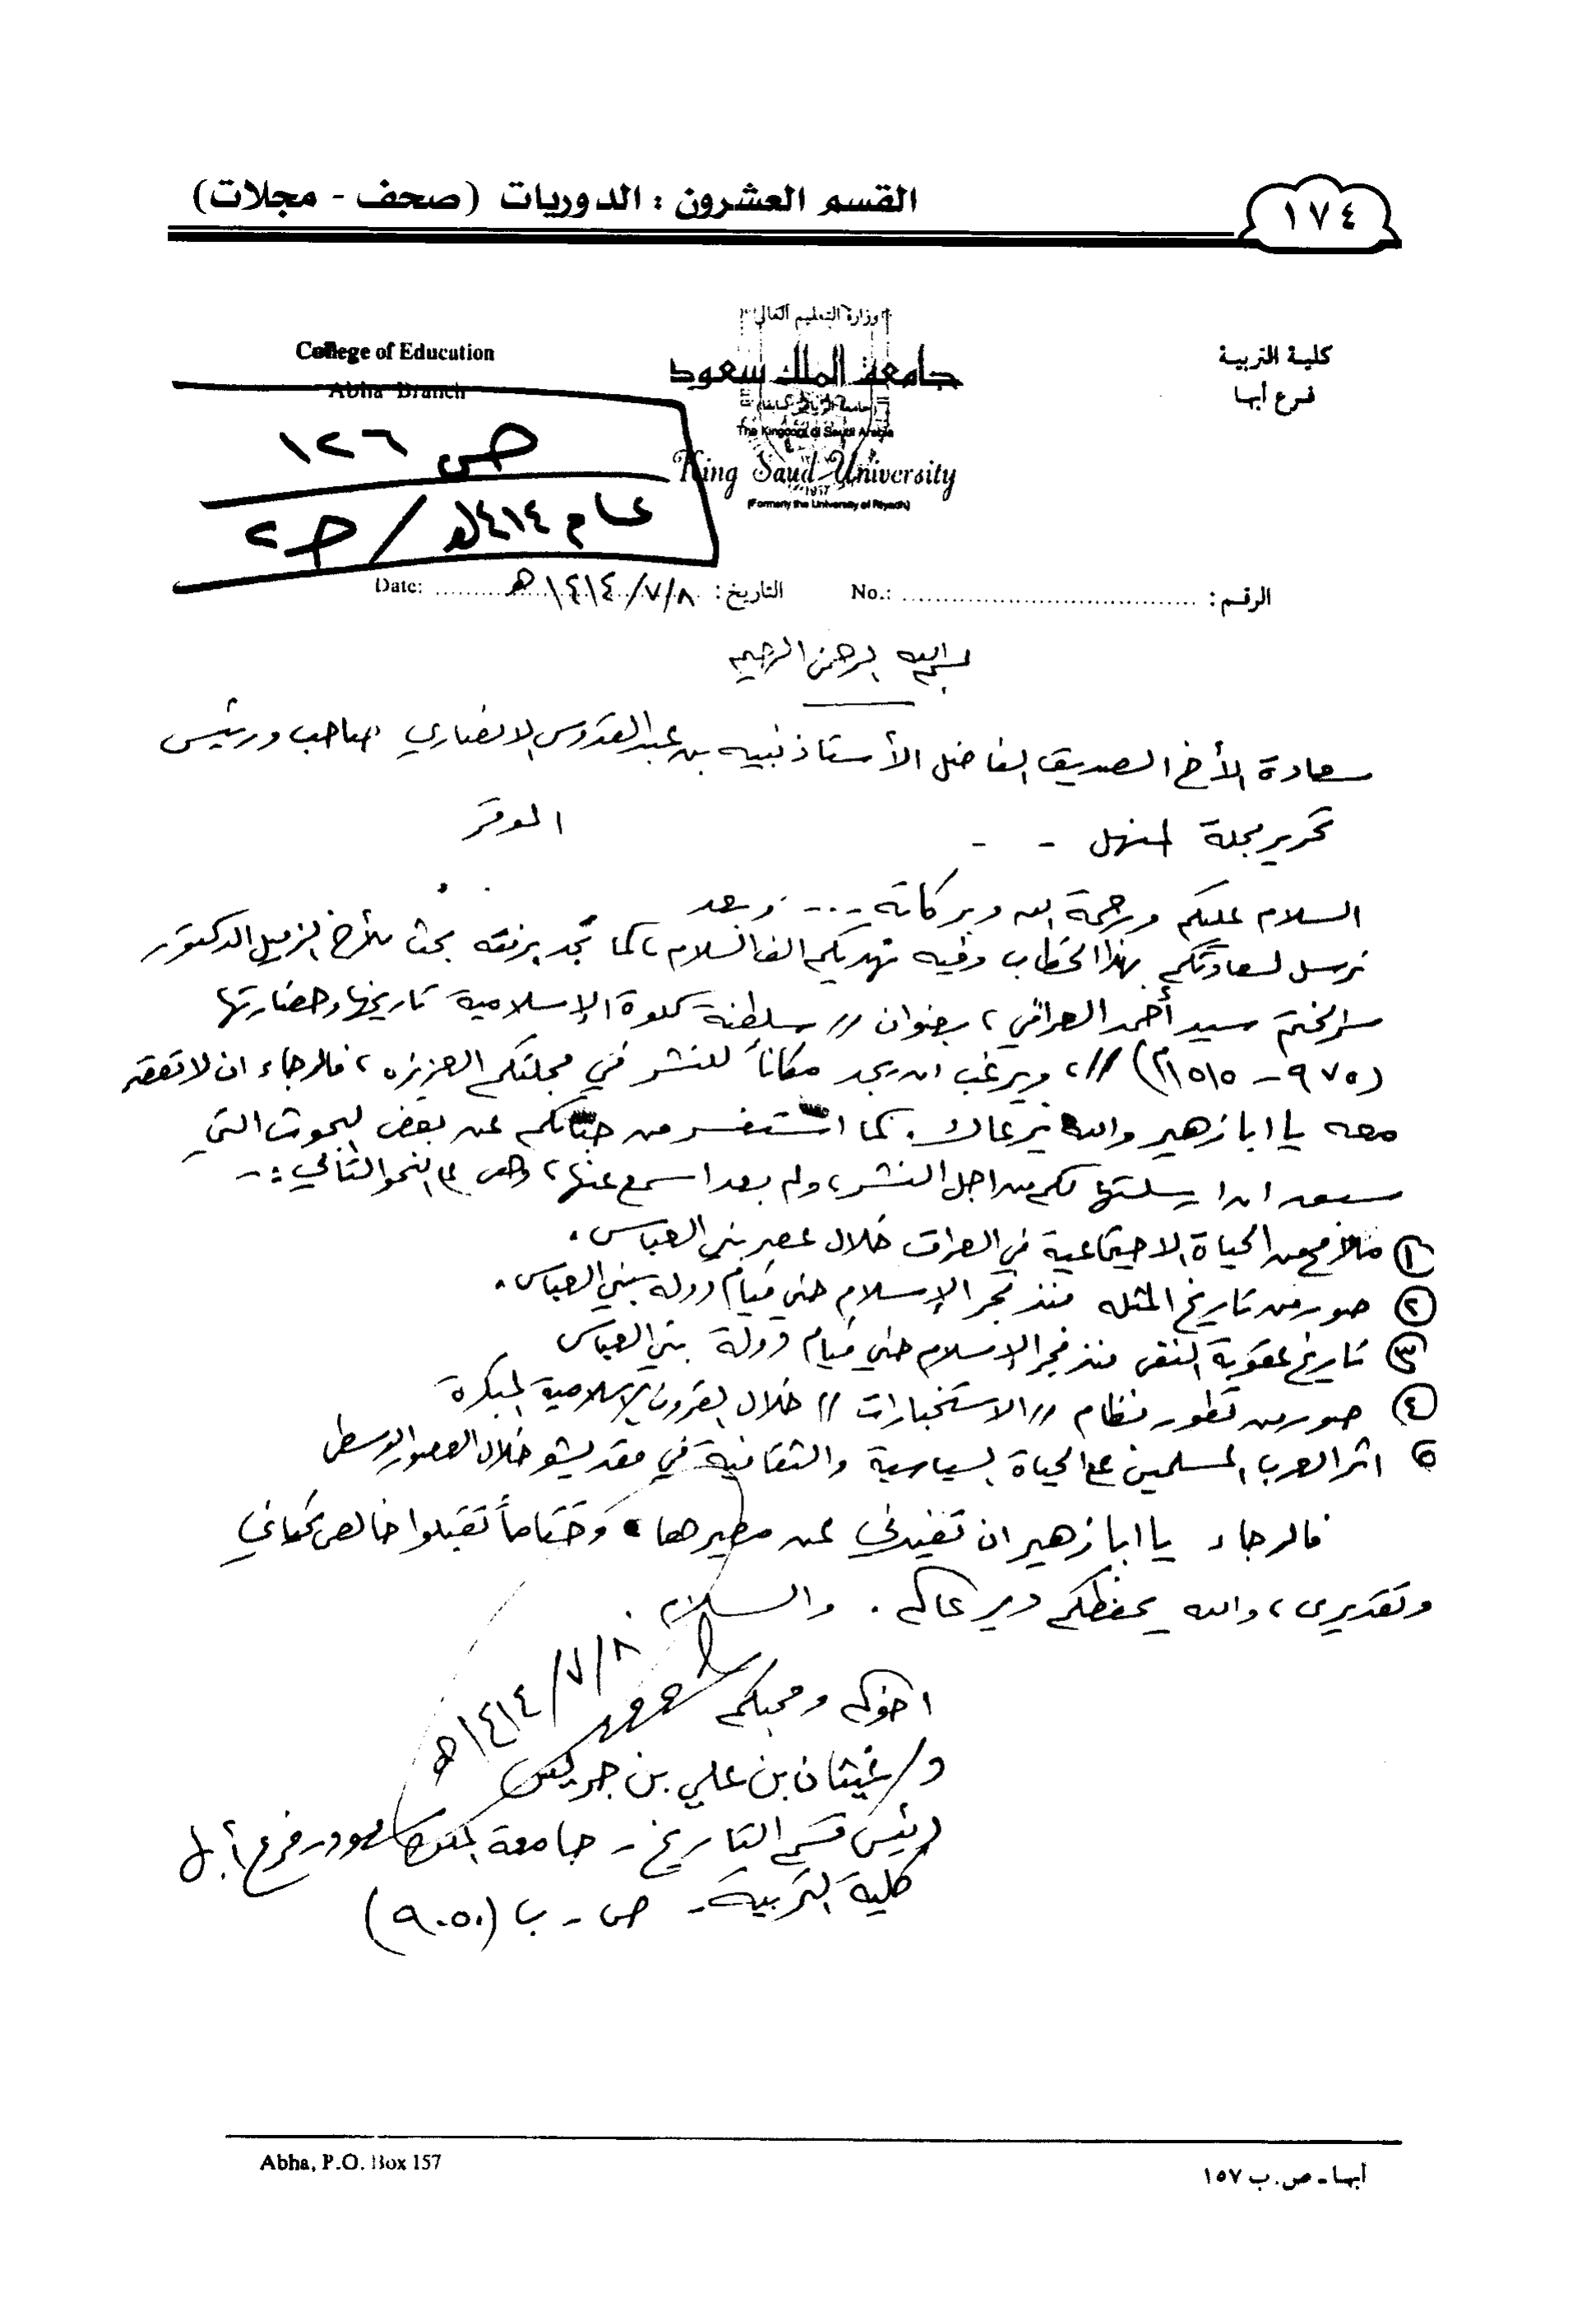 القسم العشرون : الدوريات (صحف - مجلات)
١٧٤
كلية التربية
فرع أبها
وزارة التعليم العالي
جامعة الملك سعود
The Kingdom of Saudi Arabia
King Saud University
(Formerly the University of Riyadh)
College of Education
Abha Branch
ص ١٢٦
عام ١٤١٤هـ / ج٢
الرقم : No.:
التاريخ : ١٤١٤/٧/٨هـ Date:
بسم الله الرحمن الرحيم
سعادة الأخ الصديق الفاضل الأستاذ نبيه بن عبدالقدوس الانصاري صاحب ورئيس
تحرير مجلة المنهل - - الموقر
السلام عليكم ورحمة الله وبركاته ... وبعد
نرسل لسعادتكم بهذا الخطاب وفيه نهديكم الف السلام، كما تجد برفقه بحث الزميل الدكتور
سر الختم سيد أحمد العراقي، بعنوان // سلطنة كلوة الإسلامية تاريخها وحضارتها
(٩٧٥ - ١٥١٥م) //، ويرغب ان يجد مكاناً للنشر في مجلتكم العزيزه، فالرجاء ان لا تقصر
معه يا ابا زهير والله يرعاك. كما استفسر من جنابكم عن بعض البحوث التي
سبق ان ارسلتها لكم من اجل النشر، ولم بعد اسمع عنها، وهي على النحو التالي :-
① ملامح من الحياة الاجتماعية في العراق خلال عصر بني العباس.
② صور من تاريخ المثله منذ فجر الإسلام حتى قيام دولة بني العباس.
③ تاريخ عقوبة النفي منذ فجر الإسلام حتى قيام دولة بني العباس
④ صور من تطور نظام // الاستخبارات // خلال القرون الإسلامية المبكرة
⑤ اثر العرب المسلمين على الحياة السياسية والثقافية في مقديشو خلال العصور الوسطى
فالرجاء يا ابا زهير ان تفيدني عن مصيرها، وختاماً تقبلوا خالص تحياتي
وتقديري، والله يحفظكم ويرعاكم. والسلام.
اخوكم ومحبكم
١٤١٤/٧/٨هـ
د/ غيثان بن علي بن جريس
رئيس قسم التاريخ - جامعة الملك سعود فرع أبها
كلية التربية - ص - ب (٩٠٥٠)
أبها - ص. ب ١٥٧
Abha, P.O. Box 157